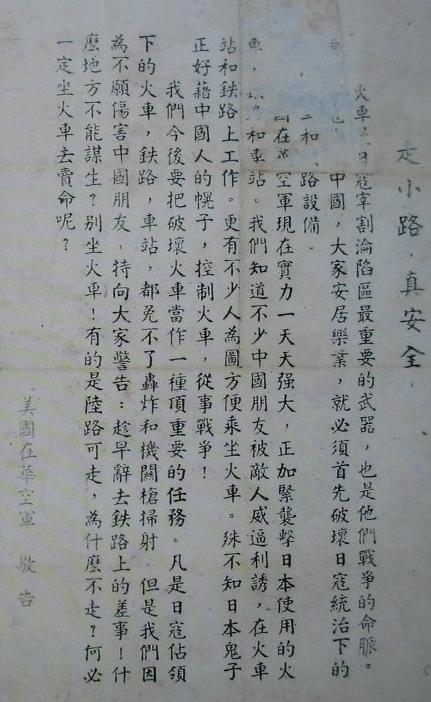 走小路，真安全。
火車日寇宰割淪陷區最重要的武器，也是他們戰爭的命脈。
中國，大家安居樂業，就必須首先破壞日寇統治下的
和路設備。
國在華空軍現在實力一天天强大，正加緊襲擊日本使用的火
車，和車站。我們知道不少中國朋友被敵人威逼利誘，在火車
站和鉄路上工作。更有不少人為圖方便乘坐火車。殊不知日本鬼子
正好藉中國人的幌子，控制火車，從事戰爭！
我們今後要把破壞火車當作一種頂重要的任務。凡是日寇佔領
下的火車，鉄路，車站，都免不了轟炸和機關槍掃射 但是我們因
為不願傷害中國朋友，特向大家警告：趁早辭去鉄路上的差事！什
麼地方不能謀生？別坐火車！有的是陸路可走，為什麼不走？何必
一定坐火車去賣命呢？
美國在華空軍 敬告